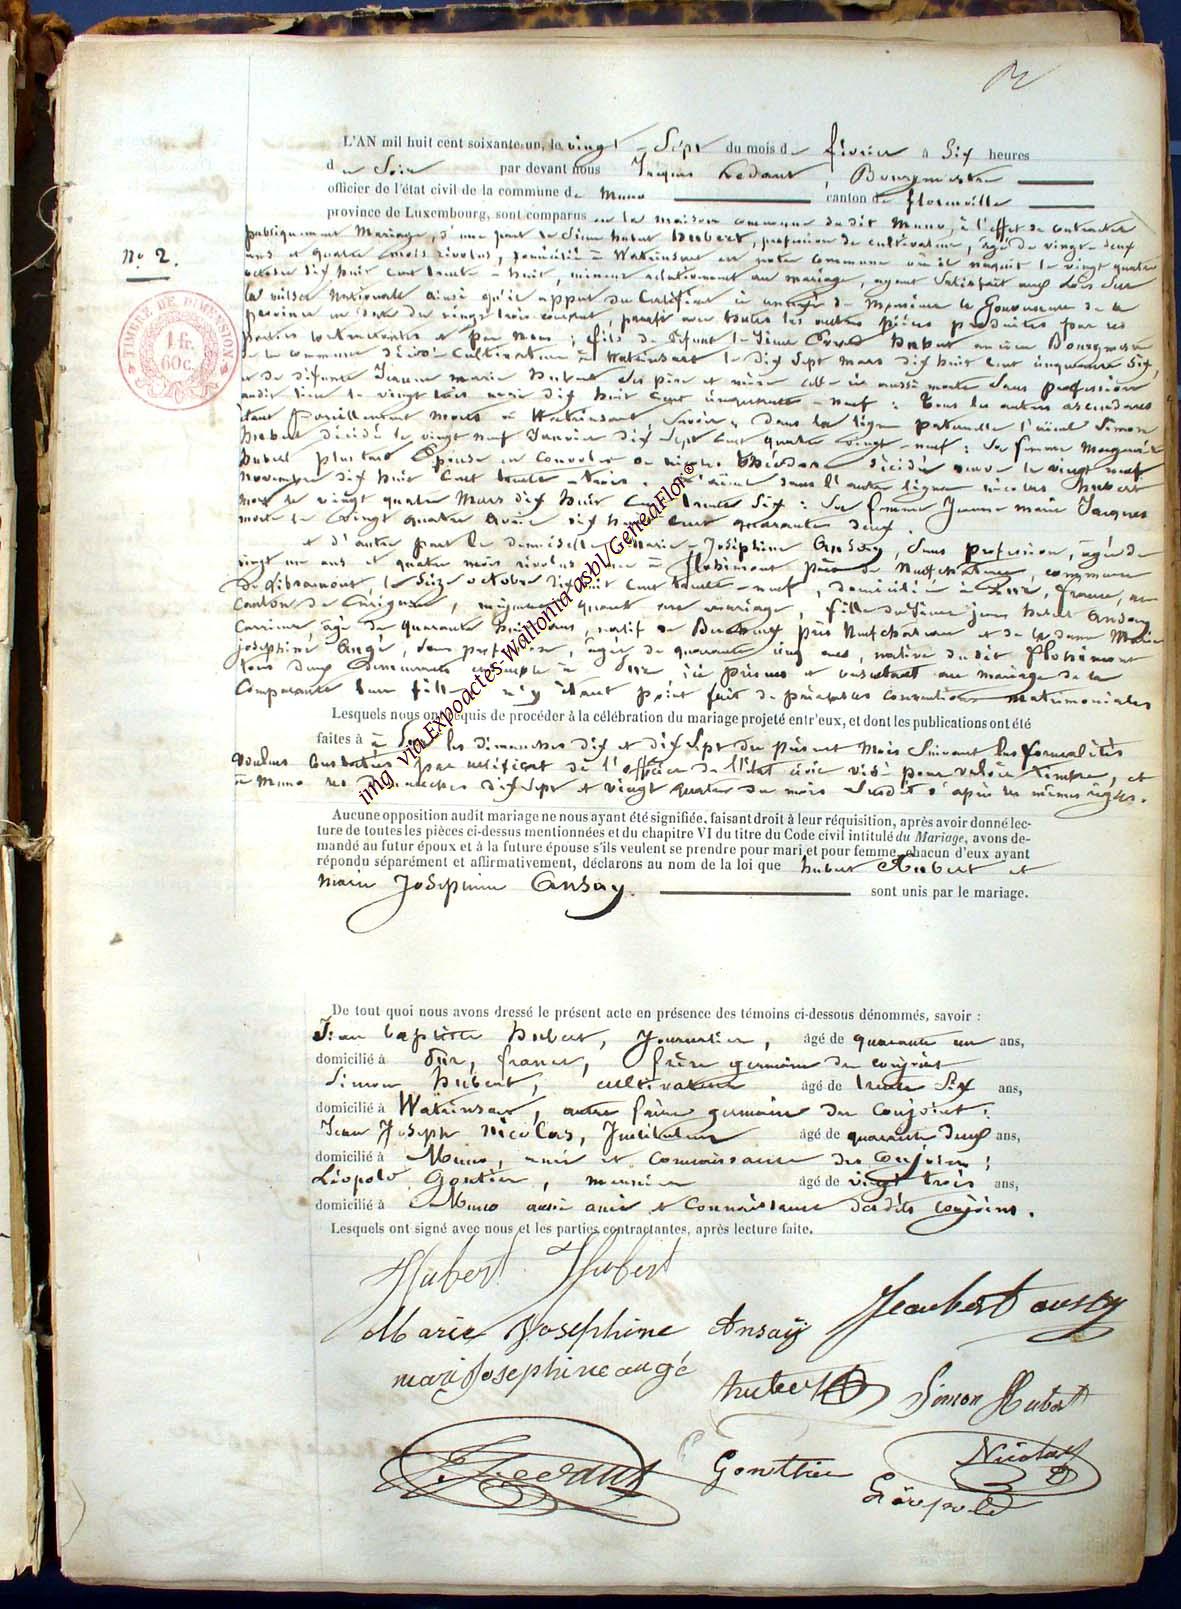 L'AN mil huit cent soixante un, le vingt-sept du mois de février à six heures
du soir par devant nous Jacques Ledant, Bourgmestre
officier de l'état civil de la commune de Muno canton de florenville
province de Luxembourg, sont comparus en la maison commune dudit Muno, à l'effet de contracter
publiquement Mariage, d'une part le Sieur hubert Hubert, profession de cultivateur, âgé de vingt deux
ans et quatre mois révolus, domicilié à Watrinsart en notre commune où il naquit le vingt quatre
octobre dix huit cent trente-huit, mineur relativement au mariage, ayant satisfait aux Lois sur
la milice Nationale ainsi qu'il appert du Certificat de Monsieur le Gouverneur de la
province en date du vingt trois courant, produit avec toutes les autres pièces produites par les
parties contractantes et par nous; fils de défunt le Sieur hubert ancien Bourgmestre
de la commune décédé Cultivateur à Watrinsart le dix sept mars dix huit cent cinquante six,
et de défunte Jeanne marie hubert ses père et mère celle-ci aussi morte sans profession
audit lieu le vingt trois dix huit cent cinquante-neuf: Tous les autres ascendans
étant pareillement morts à Watrinsart, Savoir: dans la ligne paternelle l'aïeul Simon
hubert décédé le vingt neuf Janvier dix sept cent quatre vingt-neuf: Sa femme
hubert plus tard Epouse en décédée le vingt neuf
Novembre dix huit cent trente-trois. L'aïeul dans l'autre ligne nicolas hubert
mort le vingt quatre Mars dix huit cent trente six: Sa femme Jeanne marie Jacques
morte le vingt quatre dix huit cent quarante deux.
et d'autre part la demoiselle Marie-Joséphine Ansay, Sans profession, âgée de
vingt un ans et quatre mois révolus née à flohimont près de Neufchâteau, commune
de Libramont, le seize octobre dix huit cent trente-neuf, domiciliée à france,
canton de Carignan, majeure quant au mariage, fille du Sieur jean hubert Ansay
Carrier, âgé de quarante huit ans, natif de près Neufchateau et de la dame Marie
josephine Angé, sans profession, âgée de quarante cinq ans, native dudit flohimont
tous deux demeurants ensemble à ici présens et consentant au mariage de la
Comparante leur fille n'y étant point fait de préalables conventions matrimoniales
Lesquels nous ont requis de procéder à la célébration du mariage projeté entr'eux, et dont les publications ont été
faites à les dimanches dix et dix sept du présent mois suivant les formalités
voulues constatées par certificat de l'officier de l'état civil visé pour valoir timbre, et
à Muno les dimanches dix sept et vingt quatre du mois susdit d'après les mêmes règles.
N° 2.
TIMBRE DE DIMENSION
1 fr.
60 c.
Aucune opposition audit mariage ne nous ayant été signifiée, faisant droit à leur réquisition, après avoir donné lec-
ture de toutes les pièces ci-dessus mentionnées et du chapitre VI du titre du Code civil intitulé du Mariage, avons de-
mandé au futur époux et à la future épouse s'ils veulent se prendre pour mari et pour femme, chacun d'eux ayant
répondu séparément et affirmativement, déclarons au nom de la loi que hubert Hubert et
marie Josephine Ansay. sont unis par le mariage.
De tout quoi nous avons dressé le présent acte en présence des témoins ci-dessous dénommés, savoir :
Jean baptiste hubert, Journalier, âgé de quarante un ans,
domicilié à france, frère germain du conjoint
Simon hubert, cultivateur âgé de trente six ans,
domicilié à Watrinsart, autre frère germain du conjoint;
Jean Joseph Nicolas, Instituteur âgé de quarante deux ans,
domicilié à Muno, ami et connaissance des conjoins;
Léopold Gontier, meunier âgé de vingt trois ans,
domicilié à Muno aussi ami et connaissance desdits conjoins.
Lesquels ont signé avec nous et les parties contractantes, après lecture faite.
Hubert Hubert
Marie Josephine Ansay
Jeanhubert ansay
mari Josephine angé
hubert
Simon Hubert
J. Ledant
Gonthier
Léopold
Nicolas
img via Expoactes-Wallonia asbl/GeneaFlor©